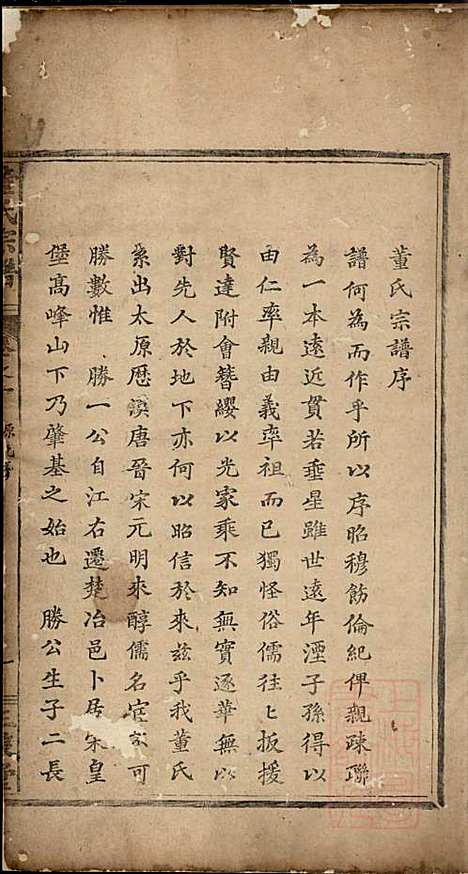 董氏宗譜序
譜何為而作乎所以序昭穆飭倫紀俾親疎聯
為一本遠近貫若垂星雖世遠年湮子孫得以
由仁率親由義率祖而已獨怪俗儒往〻扳援
賢達附會簪纓以光家乘不知無實逐華無以
對先人於地下亦何以昭信於來兹乎我董氏
系出太原歷漢唐晉宋元明來醇儒名宦不可
勝數惟 勝一公自江右遷楚冶邑卜居宋皇
堡高峰山下乃肇基之始也 勝公生子二長
氏宗譜
卷之一